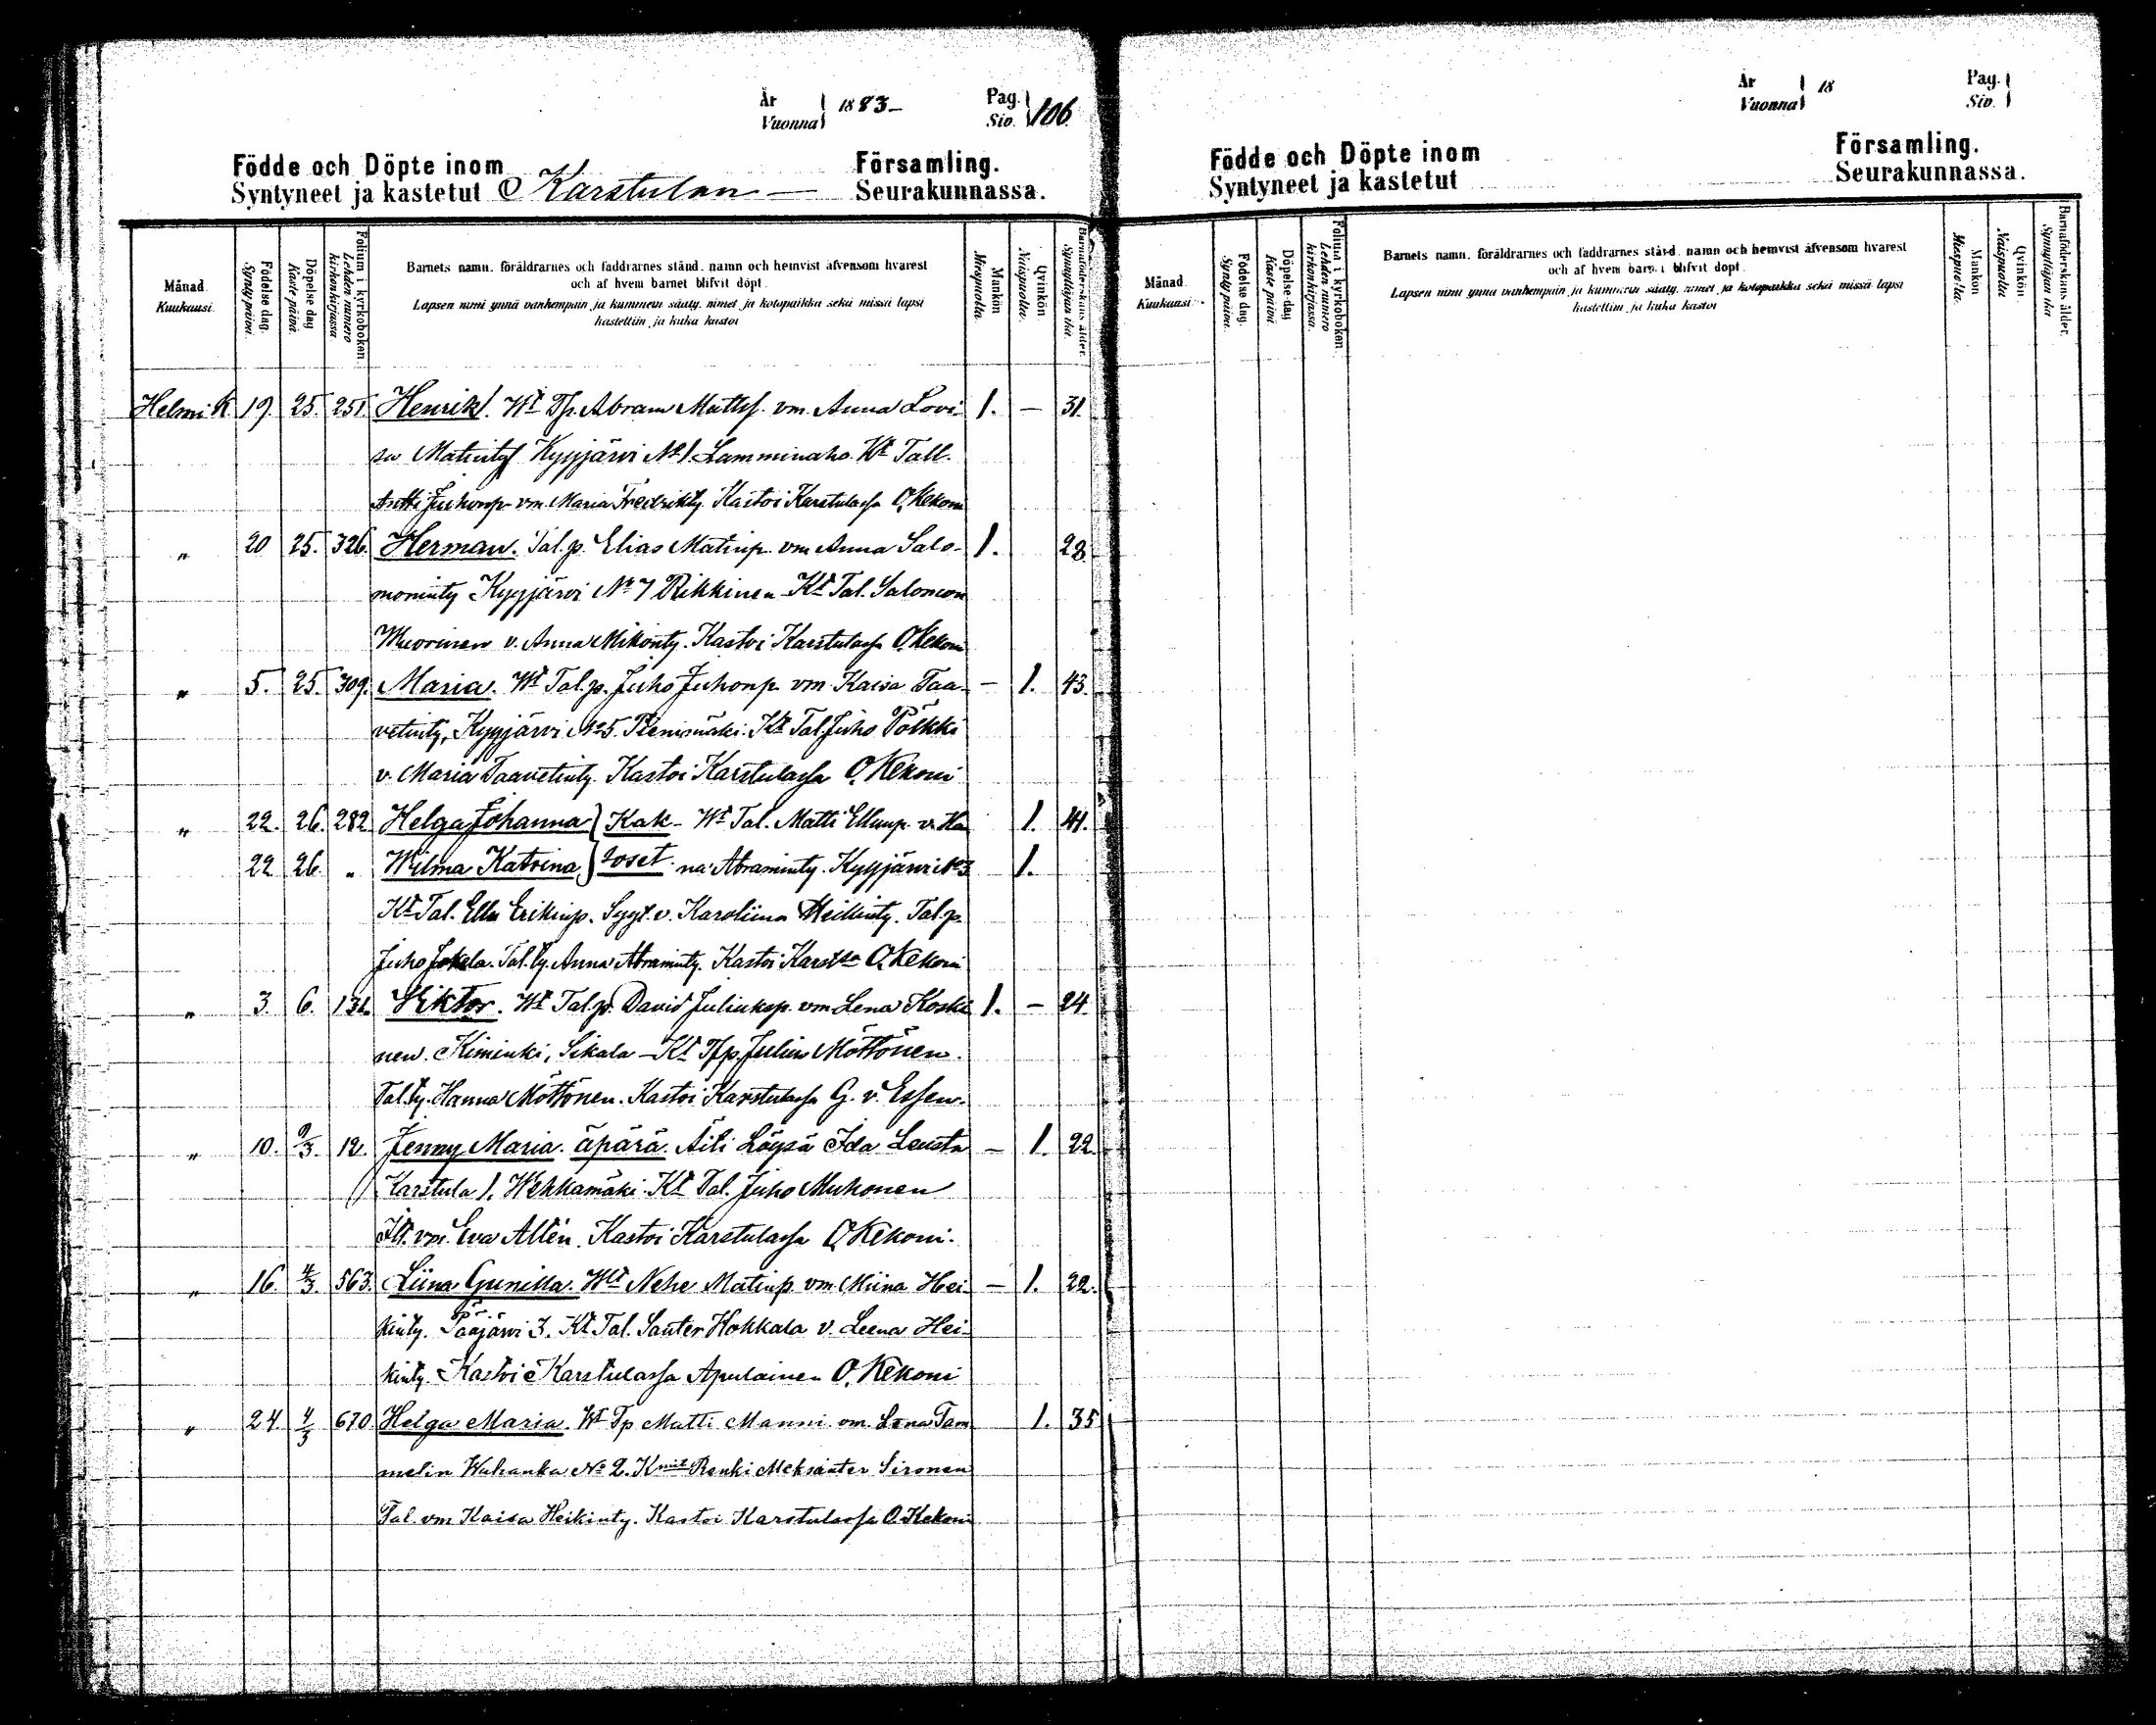 År Vuonna 1883 Pag. Siv. 106.
Födde och Döpte inom Församling.
Syntyneet ja kastetut Karstulan Seurakunnassa.
Månad Kuukausi.
Födelse dag. Synty-päivä.
Döpelse dag Kaste-päivä.
Folium i kyrkoboken. Lehden numero kirkonkirjassa
Barnets namn. föräldrarnes och faddrarnes stånd. namn och hemvist äfvensom hvarest
och af hvem barnet blifvit döpt.
Lapsen nimi ynnä vanhempain ja kummein sääty. nimet ja kotopaikka sekä missä lapsi
kastettiin ja kuka kastoi
Mankön Miespuolta.
Qvinkön Naispuolta.
Barnaföderskans ålder. Synnyttäjän ikä.
Helmi K. 19. 25. 251. Henrik. Wt Tp. Abram Matts. vm. Anna Lovi- 1. — 31.
sa Matinty Kyyjärvi No 1. Lamminaho. Kt Tall.
Antti Juhonp. vm. Maria Fredrikty. Kastoi Karstulassa O. Kekoni
" 20 25. 326. Herman. Tal.p. Elias Matinp. vm Anna Salo- 1. 28.
moninty Kyyjärvi No 7 Rikkinen Kt Tal. Salomon
Wuorinen v. Anna Mikonty. Kastoi Karstulassa O. Kekoni
" 5. 25. 309. Maria. Wt Tal.p. Juho Juhonp. vm. Kaisa Taa- — 1. 43.
vetinty, Kyyjärvi No 5. Kt Tal. Juho Pölkki
v. Maria Taavetinty. Kastoi Karstulassa O. Kekoni
" 22. 26. 282 Helga Johanna } Kak- Wt Tal. Matti Ellinp. v. Han 1. 41.
22 26 " Wilma Katrina } soset. na Abraminty. Kyyjärvi No 3 1.
Kt Tal. Elli Erikinp. v. Karoliina Heikinty. Tal.p.
Juho Jokela. Tal.ty. Anna Abraminty. Kastoi Karstssa O. Kekoni
" 3. 6. 131. Wiktor. Wt Tal.p. David Juliuksp. vm Lena Koski 1. — 24.
nen. Kiminki, Sikala — Kt Julius Möttönen.
Tal.ty. Hanna Möttönen. Kastoi Karstulassa G. v. Essen.
" 10. 9/3. 12. Jenny Maria. äpärä. Äiti Löysä Ida Leusta — 1. 22.
Karstula 1. Wehkamäki. Kt Tal. Juho Muhonen
Itt. vm. Eva Alten. Kastoi Karstulassa O. Kekoni.
" 16. 4/3. 563. Liina Gunilla. Wt Matinp. vm. Miina Hei- — 1. 22.
kinty. Pääjärvi 3. Kt Tal. Santer Hokkala v. Leena Hei-
kinty. Kastoi Karstulassa Apulainen O. Kekoni
" 24. 4/3 670 Helga Maria. Wt Tp Matti Manni vm. Lena Tam 1. 35
melin Wahanka No 2. Kmit Renki Aleksanter Sironen
Tal. vm Kaisa Heikinty. Kastoi Karstulassa O. Kekoni
År Vuonna 18 Pag. Siv.
Födde och Döpte inom Församling.
Syntyneet ja kastetut Seurakunnassa.
Månad. Kuukausi.
Födelse dag. Synty päivä.
Döpelse-dag Kaste päivä
Folium i kyrkoboken. Lehden numero kirkonkirjassa.
Barnets namn. föräldrarnes och faddrarnes stånd. namn och hemvist äfvensom hvarest
och af hvem barnet blifvit döpt.
Lapsen nimi ynnä vanhempain ja kummein sääty. nimet ja kotopaikka sekä missä lapsi
kastettiin ja kuka kastoi
Mankön Miespuolta.
Qvinkön Naispuolta
Barnaföderskans ålder. Synnyttäjän ikä